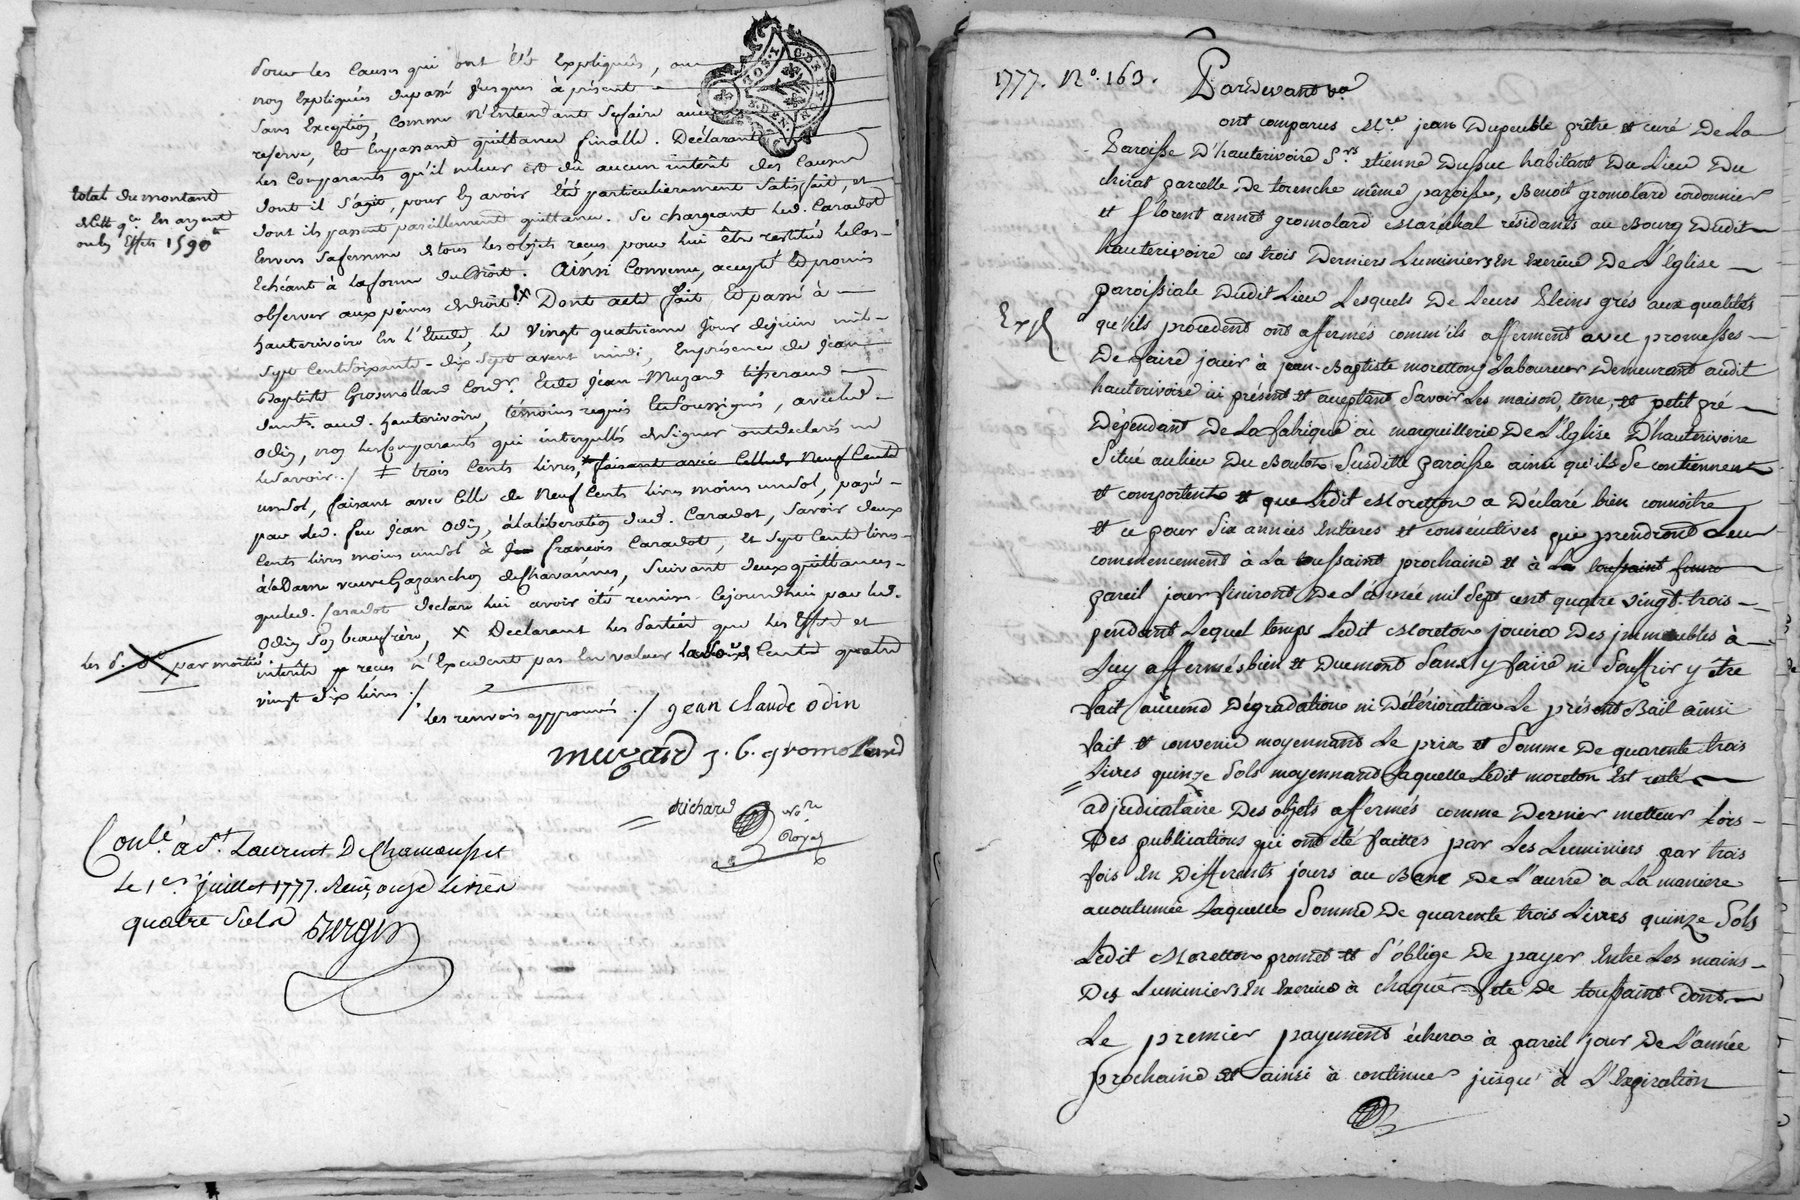 pour les Causes qui ont été Expliqués, ou
non Expliqués du passé Jusques à présent
Sans Exception, Comme N'Entendant Se faire aucune
reserve, Et En passant quittance finalle. Déclarant
les Comparants qu'il n'leur est dû aucun interêt des Causes
dont il s'agit, pour En avoir Eté particulierement Satisfait, et
dont ils passent pareillement quittance. Se chargeant led. Caradot
Envers Sa femme de tous les objets reçus pour lui être restitué le Cas
Echéant à la forme du Droit. Ainsi Convenu, accepté Et promis
observer aux peines de droit Dont acte fait Et passé à
hauterivoire En l'Etude, le Vingt quatrieme Jour de juin mil
Sept Cent Soixante-dix Sept avant midi, En présence de Jean
Baptiste Gromollard Cord.r Et de Jean Muzard tisserand
demt. aud. hauterivoire, témoins requis Et Soussignés, avec led.
Odin, non les Comparants qui interpellés de Signer ont déclarés ne
le Savoir ./ ‡ trois Cents livres, faisant avec Celle de Neuf Cents
un Sol, faisant avec Celle de Neuf Cents livres moins un Sol, payé
par led. feu Jean Odin, à la libération dud. Caradot, Savoir deux
Cents livres moins un Sol à françois Caradot, et Sept Cents livres
à la Dame veuve Gazanchon de Chavannes, Suivant deux quittances
que led. Caradot declare lui avoir été remises Cejourd'hui par led.
Odin Son beaufrère, X Declarant les Parties que les Effets et
interêts reçus n'Excedent pas En valeur Cents quatre
vingt dix livres ./
les renvois approuvés ./ jean claude odin
muzard j. b. gromolard
Richard No.re Royal
Total du montant
de lad. q.ce En argent
ou En Effets 1590 tt
par moitié
Conlé à St. Laurent De Chamousset
Le 1er Juillet 1777. Reçu onze Livres
quatre Sols
1777. No. 163. Pardevant
ont comparus Mre jean Dupeuble prêtre et curé De La
Paroisse D'hauterivoire Srs. Etienne Dupuc habitant Du Lieu Du
chirat parcelle De torenche même paroisse, Benoit gromolard cordonnier
et florent annet gromolard Maréchal résidants au Bourg Dudit
hauterivoire ces trois Derniers Luminiers En Exercice De L'Eglise
paroissiale Dudit Lieu Lesquels De Leurs Pleins grés aux qualités
qu'ils procedent ont affermés comm'ils afferment avec promesses
De faire jouir à jean-Baptiste moretton Laboureur Demeurant audit
hauterivoire ici présent et acceptant Savoir Les maison, terre, et petit pré
Dépendant De La fabrique ou marguillerie De L'Eglise D'hauterivoire
Situé au lieu Du Boulon Susditte paroisse ainsi qu'ils Se contiennent
et comportent et que Ledit Moretton a Déclaré bien connoitre
et ce pour Six années Entieres et consécutives qui prendront Leur
commencement à La toussaint prochaine et à La toussaint
pareil jour finiront De L'année mil Sept cent quatre vingt-trois
pendant Lequel temps Ledit Moreton jouira Des immeubles à
Luy affermés bien et Duement Sans y faire ni Souffrir y être
fait aucune Dégradation ni Détérioration Le présent Bail ainsi
fait et convenu moyennant Le prix et Somme De quarente trois
Livres quinze Sols moyennant Laquelle Ledit moreton Est resté
adjudicataire Des objets affermés comme Dernier metteur Lors
Des publications qui ont été faittes par Les Luminiers par trois
fois En Differents jours au Banc De L'œuvre a La maniere
accoutumée Laquelle Somme De quarente trois Livres quinze Sols
Ledit Moretton promet et S'oblige De payer Entre Les mains
Des Luminiers En Exercice à chaque fete De toussaint Dont
Le premier payement échera à pareil jour De L'année
prochaine et ainsi à continuer jusqu'à L'Expiration
Exp.